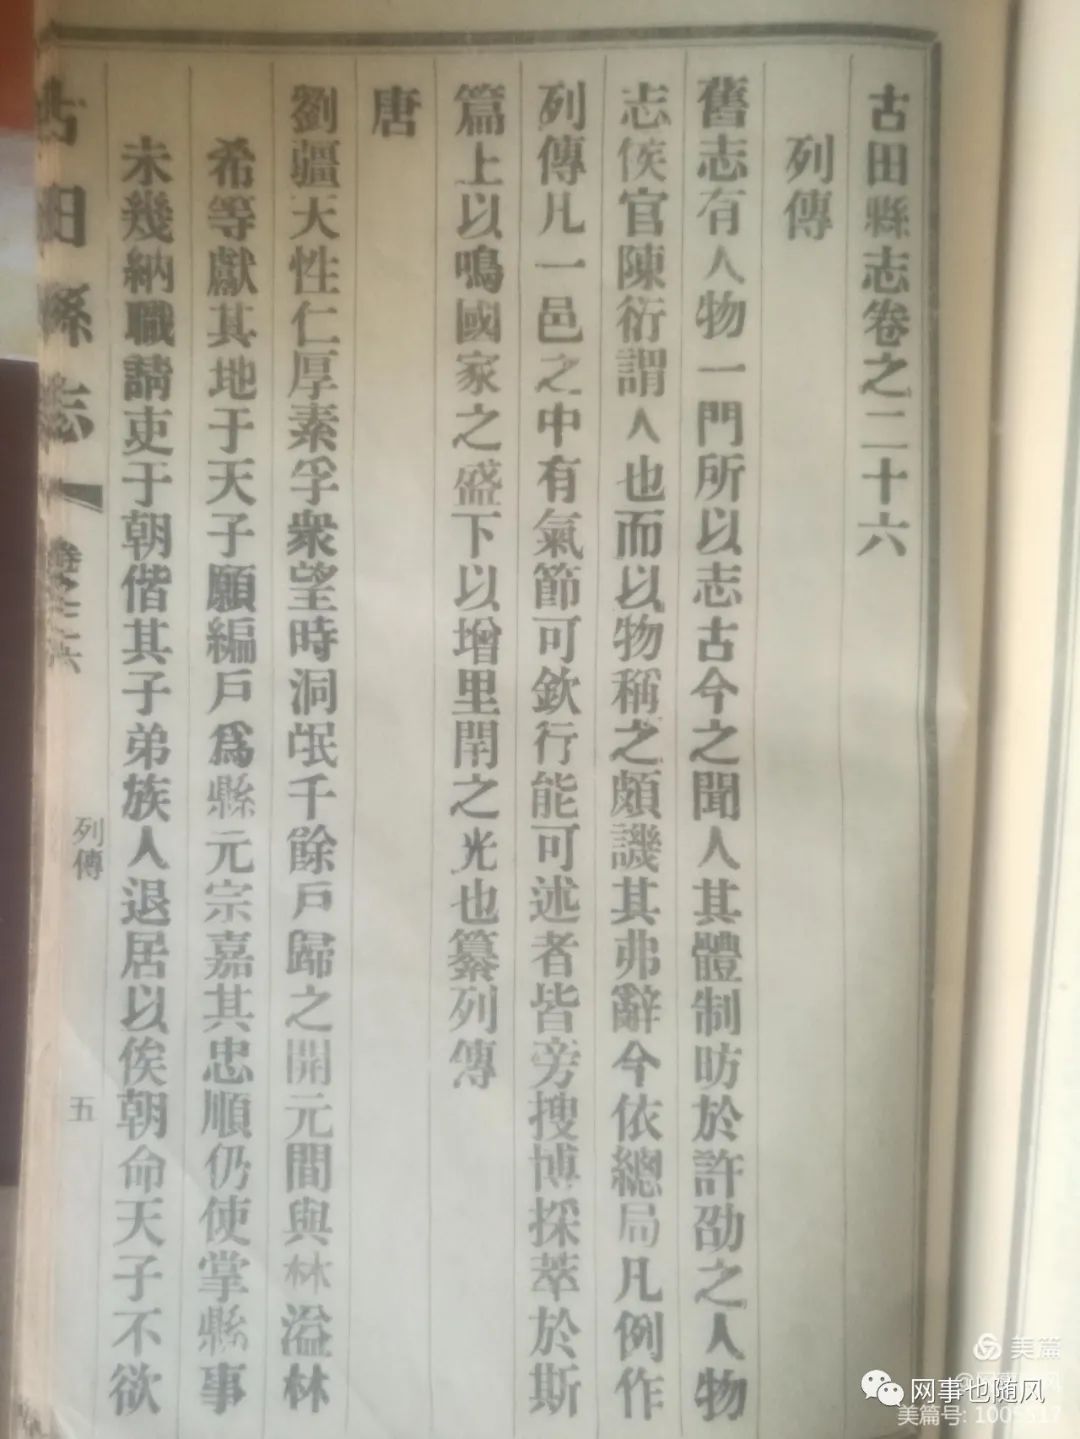 古田縣志卷之二十六
列傳
舊志有人物一門所以志古今之聞人其體制昉於許劭之人物
志侯官陳衍謂人也而以物稱之頗譏其弗辭今依總局凡例作
列傳凡一邑之中有氣節可欽行能可述者皆旁搜博採萃於斯
篇上以鳴國家之盛下以增里閈之光也纂列傳
唐
劉疆天性仁厚素孚衆望時洞氓千餘戶歸之開元間與林溢林
希等獻其地于天子願編戶爲縣元宗嘉其忠順仍使掌縣事
未幾納職請吏于朝偕其子弟族人退居以俟朝命天子不欲
古田縣志
卷之二十六
列傳
五
美篇
网事也随风
美篇号: 1005517